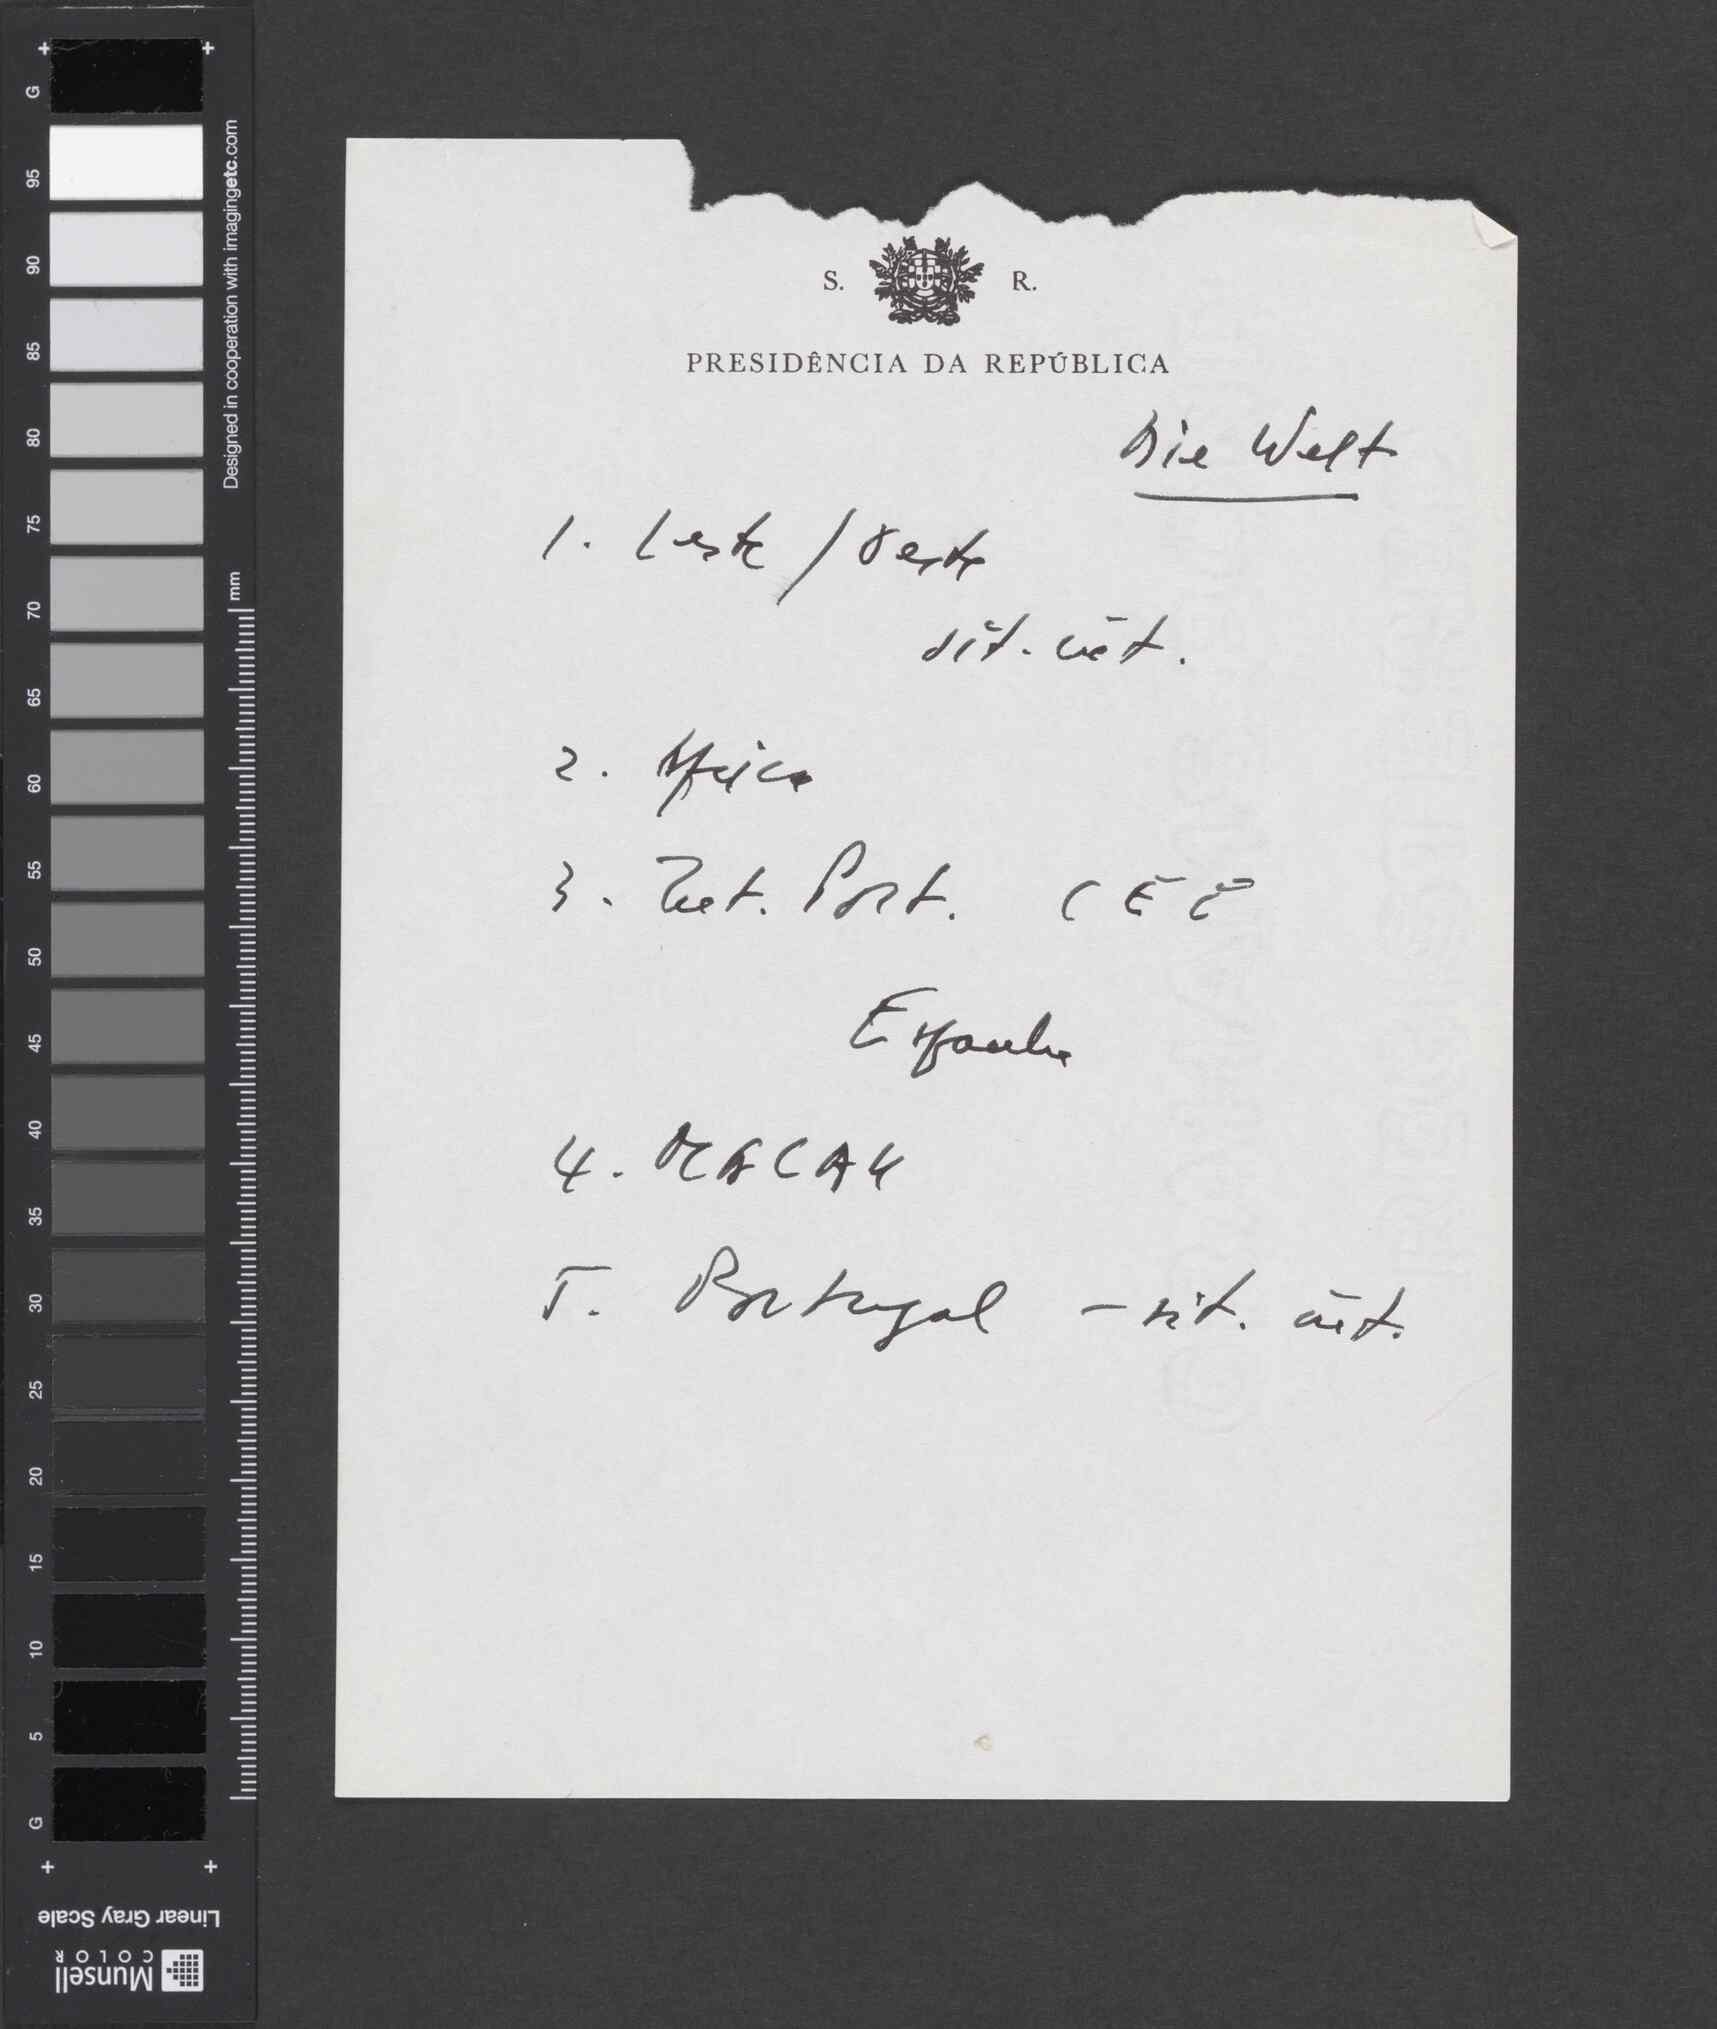 S. R.
PRESIDÊNCIA DA REPÚBLICA
Die Welt
1. Leste / Oeste
sit. int.
2. Africa
3. Int. Port. CEE
Espanha
4. MACAU
5. Portugal – sit. int.
G
95
90
85
80
75
70
65
60
55
50
45
40
35
30
25
20
15
10
5
G
Designed in cooperation with imagingetc.com
mm
Linear Gray Scale
Munsell
COLOR